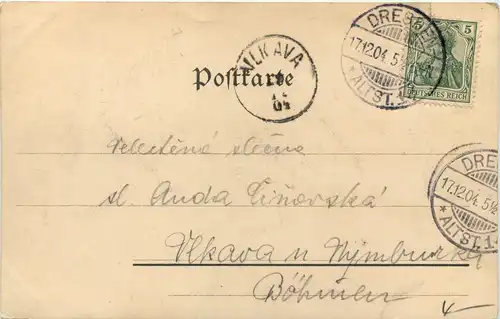 DRESDEN
17.12.04. 5½
* ALTST. 1.
5
DEUTSCHES REICH
VLKAVA
04
Postkarte
DRES
17.12.04. 5½
* ALTST. 1.
slečna
sl. Anda
Vlkava u Nymburka
Böhmen